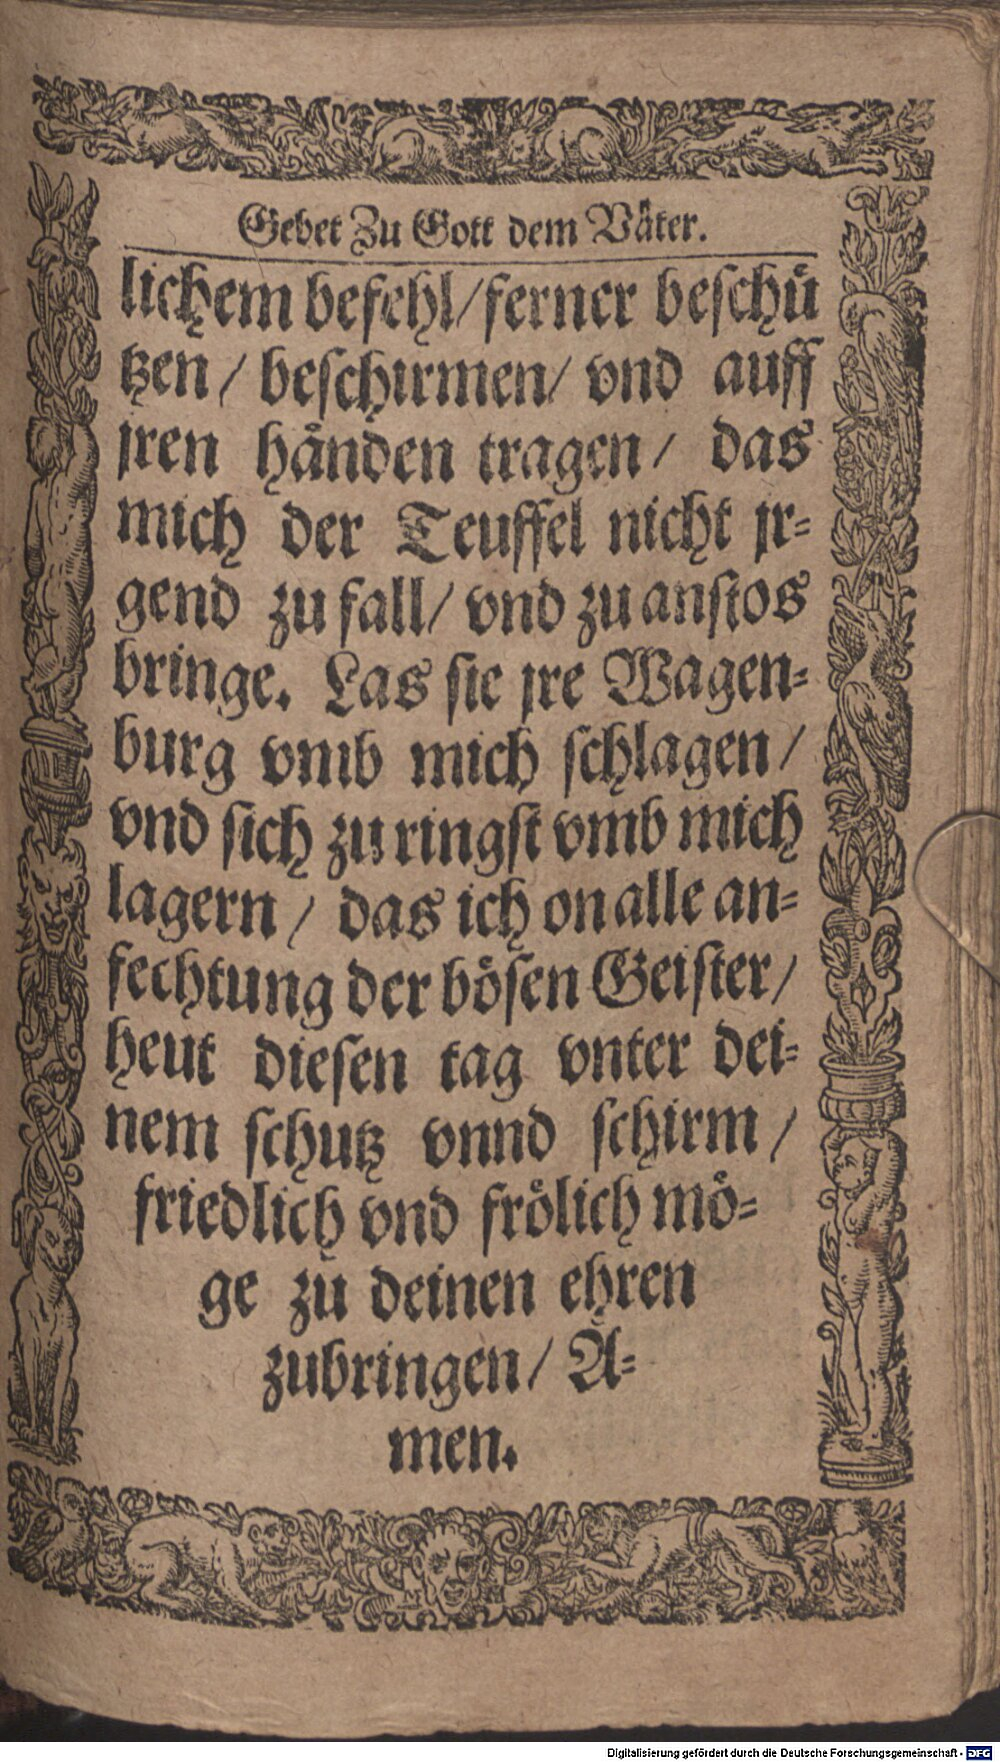 Gebet Zu Gott dem Väter.
lichem befehl/ ferner beschü
tzen/ beschirmen/ vnd auff
jren händen tragen/ das
mich der Teuffel nicht jr-
gend zu fall/ vnd zu anstos
bringe. Las sie jre Wagen-
burg vmb mich schlagen/
vnd sich zu ringst vmb mich
lagern/ das ich on alle an-
fechtung der bösen Geister/
heut diesen tag vnter dei-
nem schutz vnnd schirm/
friedlich vnd frölich mö-
ge zu deinen ehren
zubringen/ A-
men.
Digitalisierung gefördert durch die Deutsche Forschungsgemeinschaft - DFG